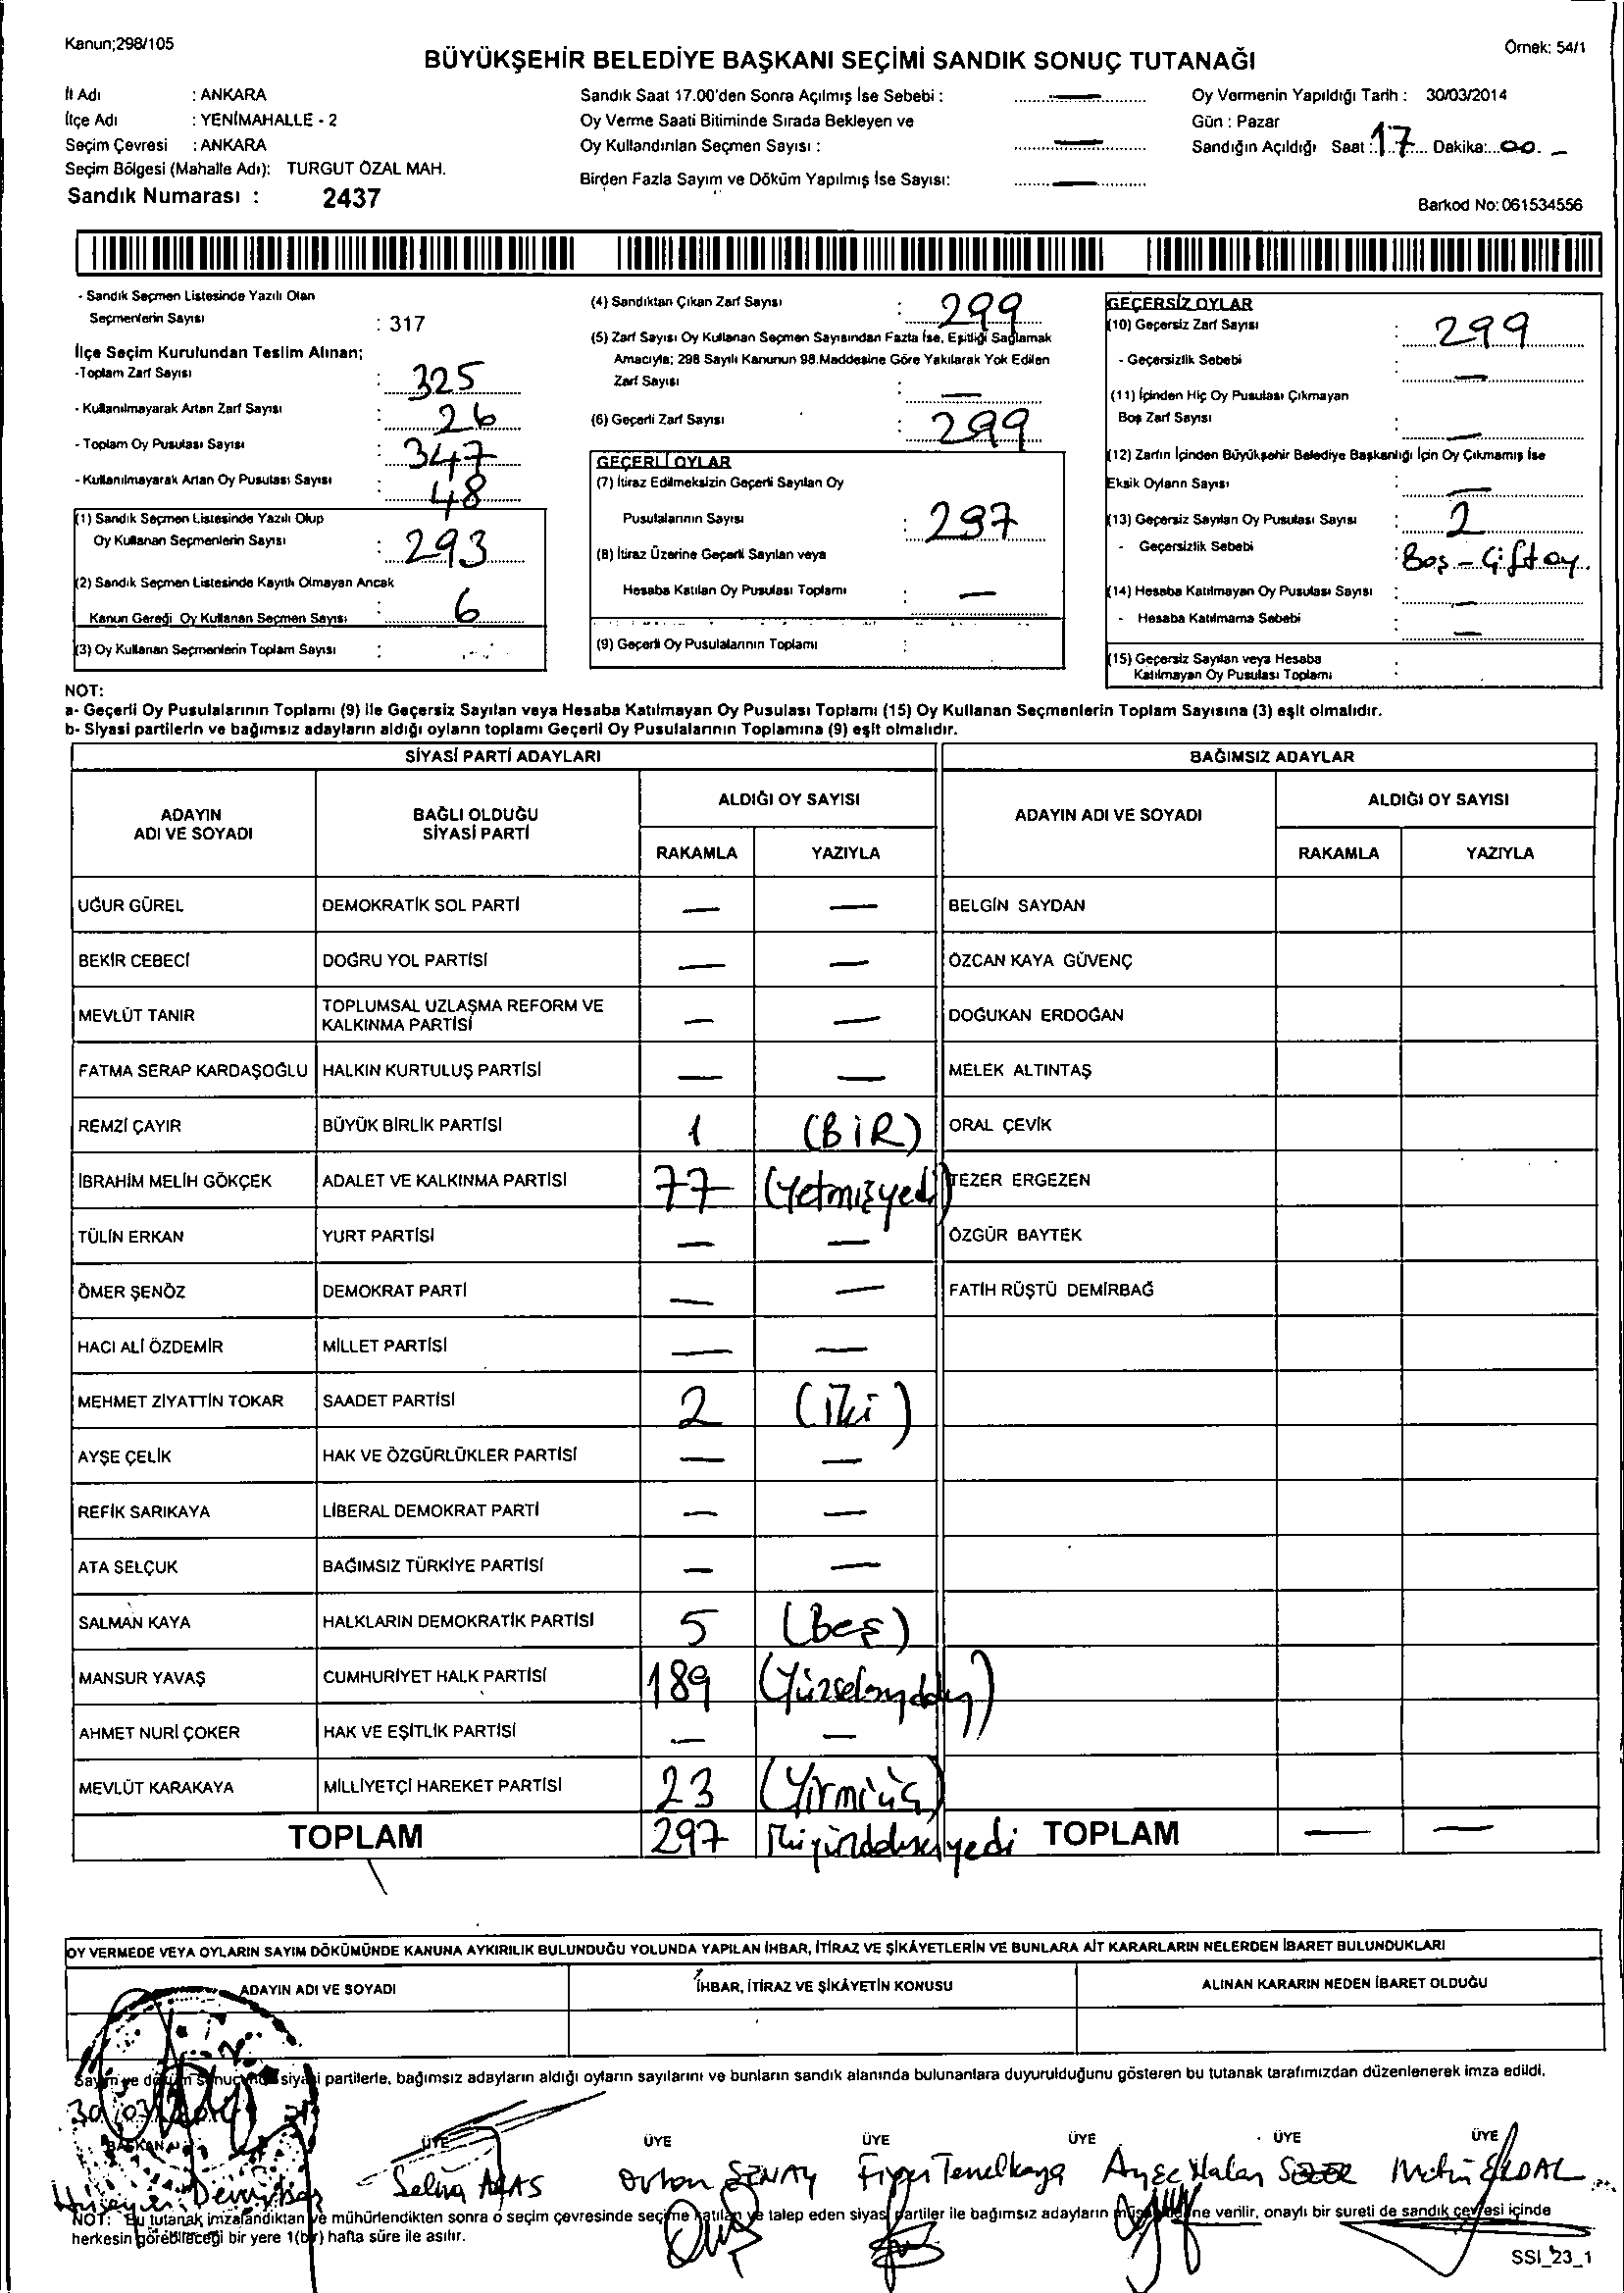 Kanun;298/105
Örnek: 54/1
BÜYÜKŞEHİR BELEDİYE BAŞKANI SEÇİMİ SANDIK SONUÇ TUTANAĞI
İl Adı : ANKARA
İlçe Adı : YENİMAHALLE - 2
Seçim Çevresi : ANKARA
Seçim Bölgesi (Mahalle Adı): TURGUT ÖZAL MAH.
Sandık Numarası : 2437
Sandık Saat 17.00'den Sonra Açılmış İse Sebebi : —
Oy Verme Saati Bitiminde Sırada Bekleyen ve
Oy Kullandırılan Seçmen Sayısı : —
Birden Fazla Sayım ve Döküm Yapılmış İse Sayısı: —
Oy Vermenin Yapıldığı Tarih : 30/03/2014
Gün : Pazar
Sandığın Açıldığı Saat : 17 Dakika: 00. —
Barkod No: 061534556
- Sandık Seçmen Listesinde Yazılı Olan
Seçmenlerin Sayısı : 317
İlçe Seçim Kurulundan Teslim Alınan;
-Toplam Zarf Sayısı : 325
- Kullanılmayarak Artan Zarf Sayısı : 26
- Toplam Oy Pusulası Sayısı : 347
- Kullanılmayarak Artan Oy Pusulası Sayısı : 48
(1) Sandık Seçmen Listesinde Yazılı Olup
Oy Kullanan Seçmenlerin Sayısı : 293
(2) Sandık Seçmen Listesinde Kayıtlı Olmayan Ancak
Kanun Gereği Oy Kullanan Seçmen Sayısı : 6
(3) Oy Kullanan Seçmenlerin Toplam Sayısı :
(4) Sandıktan Çıkan Zarf Sayısı : 299
(5) Zarf Sayısı Oy Kullanan Seçmen Sayısından Fazla İse, Eşitliği Sağlamak
Amacıyla; 298 Sayılı Kanunun 98.Maddesine Göre Yakılarak Yok Edilen
Zarf Sayısı : —
(6) Geçerli Zarf Sayısı : 299
GEÇERLİ OYLAR
(7) İtiraz Edilmeksizin Geçerli Sayılan Oy
Pusulalarının Sayısı : 297
(8) İtiraz Üzerine Geçerli Sayılan veya
Hesaba Katılan Oy Pusulası Toplamı : —
(9) Geçerli Oy Pusulalarının Toplamı :
GEÇERSİZ OYLAR
(10) Geçersiz Zarf Sayısı : 299
- Geçersizlik Sebebi : —
(11) İçinden Hiç Oy Pusulası Çıkmayan
Boş Zarf Sayısı : —
(12) Zarfın İçinden Büyükşehir Belediye Başkanlığı İçin Oy Çıkmamış İse
Eksik Oyların Sayısı : —
(13) Geçersiz Sayılan Oy Pusulası Sayısı : 2
- Geçersizlik Sebebi : Boş - Çift oy.
(14) Hesaba Katılmayan Oy Pusulası Sayısı : —
- Hesaba Katılmama Sebebi : —
(15) Geçersiz Sayılan veya Hesaba
Katılmayan Oy Pusulası Toplamı :
NOT:
a- Geçerli Oy Pusulalarının Toplamı (9) ile Geçersiz Sayılan veya Hesaba Katılmayan Oy Pusulası Toplamı (15) Oy Kullanan Seçmenlerin Toplam Sayısına (3) eşit olmalıdır.
b- Siyasi partilerin ve bağımsız adayların aldığı oyların toplamı Geçerli Oy Pusulalarının Toplamına (9) eşit olmalıdır.
SİYASİ PARTİ ADAYLARI BAĞIMSIZ ADAYLAR
ADAYIN
ADI VE SOYADI
BAĞLI OLDUĞU
SİYASİ PARTİ
ALDIĞI OY SAYISI
RAKAMLA YAZIYLA
ADAYIN ADI VE SOYADI
ALDIĞI OY SAYISI
RAKAMLA YAZIYLA
UĞUR GÜREL DEMOKRATİK SOL PARTİ — — BELGİN SAYDAN
BEKİR CEBECİ DOĞRU YOL PARTİSİ — — ÖZCAN KAYA GÜVENÇ
MEVLÜT TANIR TOPLUMSAL UZLAŞMA REFORM VE
KALKINMA PARTİSİ — — DOĞUKAN ERDOĞAN
FATMA SERAP KARDAŞOĞLU HALKIN KURTULUŞ PARTİSİ — — MELEK ALTINTAŞ
REMZİ ÇAYIR BÜYÜK BİRLİK PARTİSİ 1 (BİR) ORAL ÇEVİK
İBRAHİM MELİH GÖKÇEK ADALET VE KALKINMA PARTİSİ 77 (Yetmişyedi) TEZER ERGEZEN
TÜLİN ERKAN YURT PARTİSİ — — ÖZGÜR BAYTEK
ÖMER ŞENÖZ DEMOKRAT PARTİ — — FATİH RÜŞTÜ DEMİRBAĞ
HACI ALİ ÖZDEMİR MİLLET PARTİSİ — —
MEHMET ZİYATTİN TOKAR SAADET PARTİSİ 2 (İki)
AYŞE ÇELİK HAK VE ÖZGÜRLÜKLER PARTİSİ — —
REFİK SARIKAYA LİBERAL DEMOKRAT PARTİ — —
ATA SELÇUK BAĞIMSIZ TÜRKİYE PARTİSİ — —
SALMAN KAYA HALKLARIN DEMOKRATİK PARTİSİ 5 (Beş)
MANSUR YAVAŞ CUMHURİYET HALK PARTİSİ 189
AHMET NURİ ÇOKER HAK VE EŞİTLİK PARTİSİ — —
MEVLÜT KARAKAYA MİLLİYETÇİ HAREKET PARTİSİ 23 (Yirmiüç)
TOPLAM 297 TOPLAM — —
OY VERMEDE VEYA OYLARIN SAYIM DÖKÜMÜNDE KANUNA AYKIRILIK BULUNDUĞU YOLUNDA YAPILAN İHBAR, İTİRAZ VE ŞİKÂYETLERİN VE BUNLARA AİT KARARLARIN NELERDEN İBARET BULUNDUKLARI
ADAYIN ADI VE SOYADI İHBAR, İTİRAZ VE ŞİKÂYETİN KONUSU ALINAN KARARIN NEDEN İBARET OLDUĞU
Sayım ve döküm sonucunda siyasi partilerle, bağımsız adayların aldığı oyların sayılarını ve bunların sandık alanında bulunanlara duyurulduğunu gösteren bu tutanak tarafımızdan düzenlenerek imza edildi.
BAŞKAN ÜYE ÜYE ÜYE ÜYE ÜYE ÜYE
Hüseyin Selma Orhan ŞENAY Figen Temelkaya Ayşe Metin ERDAL
NOT: Bu tutanak imzalandıktan ve mühürlendikten sonra o seçim çevresinde seçime katılan ve talep eden siyasi partiler ile bağımsız adayların verilir, onaylı bir sureti de sandık çevresi içinde
herkesin görebileceği bir yere 1(bir) hafta süre ile asılır.
SSI_23_1